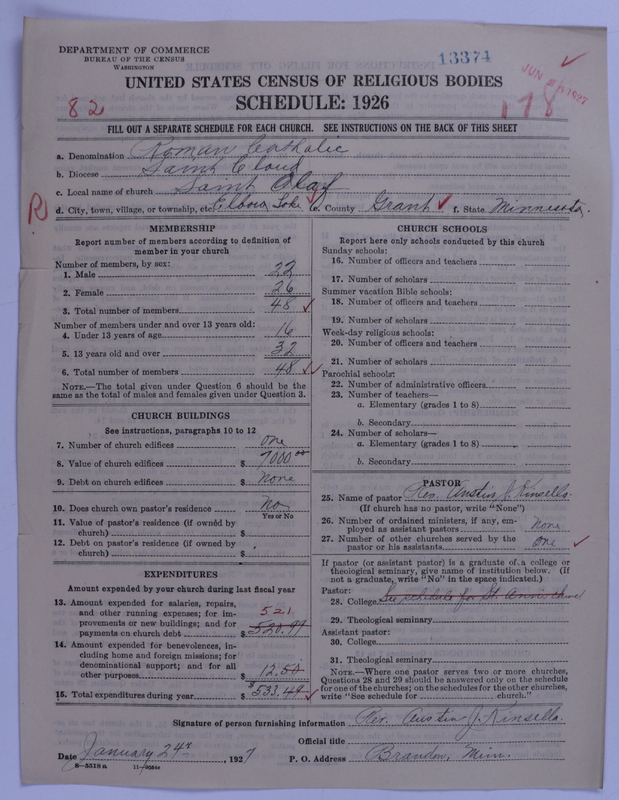 DEPARTMENT OF COMMERCE
BUREAU OF THE CENSUS
WASHINGTON
13374
UNITED STATES CENSUS OF RELIGIOUS BODIES
SCHEDULE: 1926
82
178
FILL OUT A SEPARATE SCHEDULE FOR EACH CHURCH. SEE INSTRUCTIONS ON THE BACK OF THIS SHEET
a. Denomination Roman Catholic
b. Diocese Saint Cloud
c. Local name of church Saint Olaf
d. City, town, village, or township, etc. Elbow Lake e. County Grant f. State Minnesota.
MEMBERSHIP
Report number of members according to definition of
member in your church
Number of members, by sex:
1. Male 22
2. Female 26
3. Total number of members 48
Number of members under and over 13 years old:
4. Under 13 years of age 16
5. 13 years old and over 32
6. Total number of members 48
NOTE.—The total given under Question 6 should be the
same as the total of males and females given under Question 3.
CHURCH BUILDINGS
See instructions, paragraphs 10 to 12
7. Number of church edifices one
8. Value of church edifices $ 7000 00
9. Debt on church edifices $ none
10. Does church own pastor's residence No
Yes or No
11. Value of pastor's residence (if owned by
church) $
12. Debt on pastor's residence (if owned by
church) $
EXPENDITURES
Amount expended by your church during last fiscal year
13. Amount expended for salaries, repairs,
and other running expenses; for im-
provements or new buildings; and for
payments on church debt $ 521 520.99
14. Amount expended for benevolences, in-
cluding home and foreign missions; for
denominational support; and for all
other purposes $ 12.50
15. Total expenditures during year $ 533.49
CHURCH SCHOOLS
Report here only schools conducted by this church
Sunday schools:
16. Number of officers and teachers
17. Number of scholars
Summer vacation Bible schools:
18. Number of officers and teachers
19. Number of scholars
Week-day religious schools:
20. Number of officers and teachers
21. Number of scholars
Parochial schools:
22. Number of administrative officers
23. Number of teachers—
a. Elementary (grades 1 to 8)
b. Secondary
24. Number of scholars—
a. Elementary (grades 1 to 8)
b. Secondary
PASTOR
25. Name of pastor Rev. Austin J. Kinsella
(If church has no pastor, write "None")
26. Number of ordained ministers, if any, em-
ployed as assistant pastors None
27. Number of other churches served by the
pastor or his assistants One
If pastor (or assistant pastor) is a graduate of a college or
theological seminary, give name of institution below. (If
not a graduate, write "No" in the space indicated.)
Pastor:
28. College See schedule for St. Ann's church
29. Theological seminary
Assistant pastor:
30. College
31. Theological seminary
NOTE.—Where one pastor serves two or more churches,
Questions 28 and 29 should be answered only on the schedule
for one of the churches; on the schedules for the other churches,
write "See schedule for church."
Signature of person furnishing information Rev. Austin J. Kinsella.
Official title
Date January 24th, 1927
P. O. Address Brandon, Minn.
8—5518a 11—9034